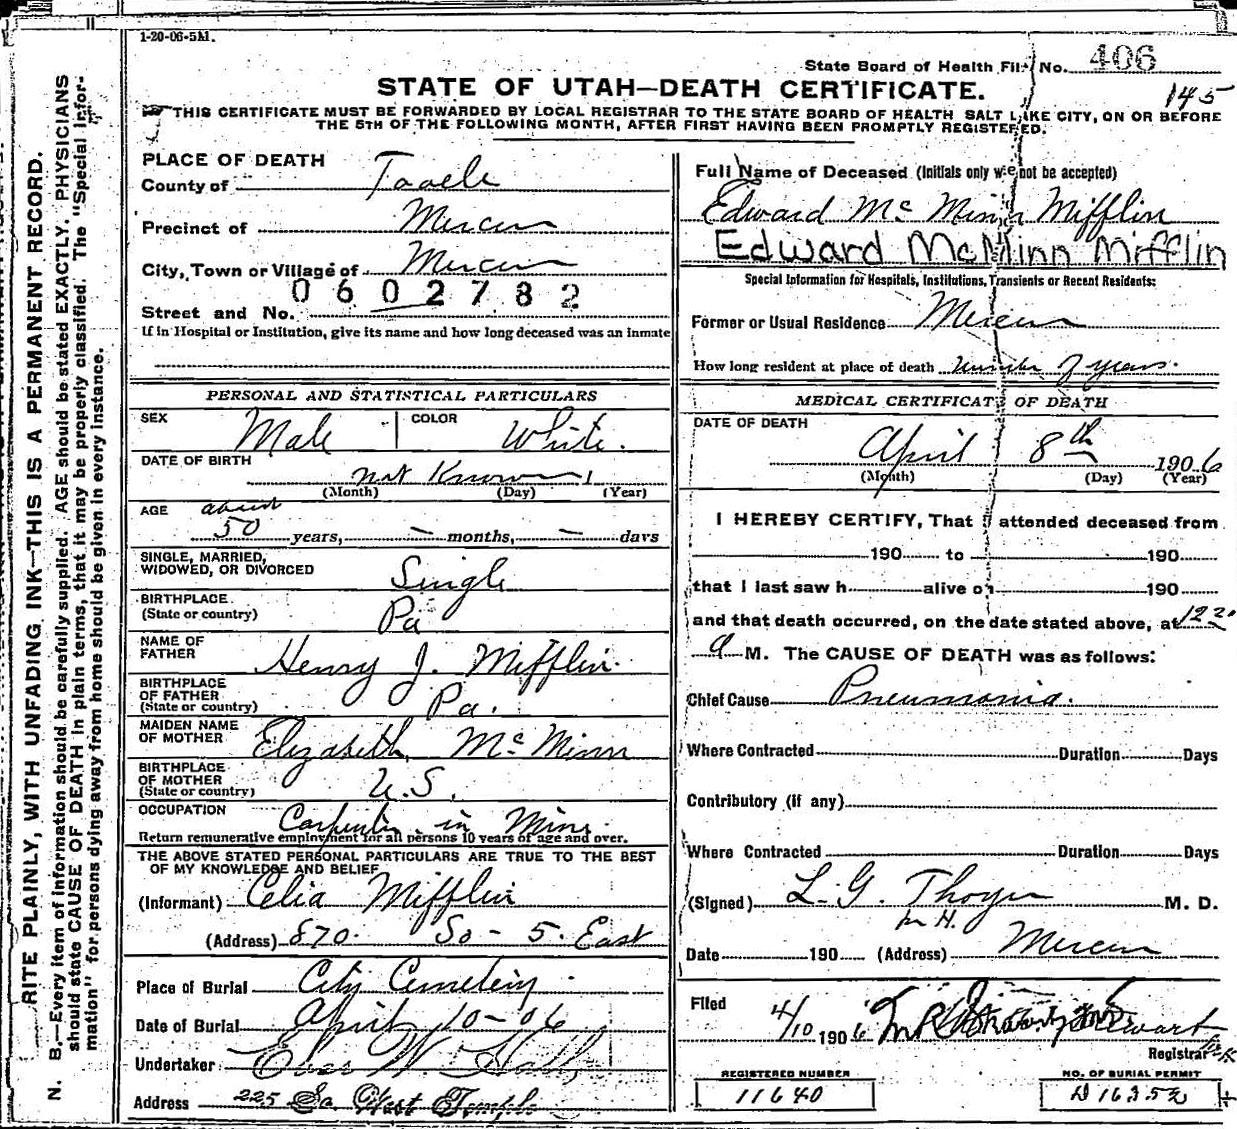 1-20-06-5M.
State Board of Health File No. 406
STATE OF UTAH—DEATH CERTIFICATE.
145
THIS CERTIFICATE MUST BE FORWARDED BY LOCAL REGISTRAR TO THE STATE BOARD OF HEALTH SALT LAKE CITY, ON OR BEFORE
THE 5TH OF THE FOLLOWING MONTH, AFTER FIRST HAVING BEEN PROMPTLY REGISTERED.
RITE PLAINLY, WITH UNFADING INK—THIS IS A PERMANENT RECORD.
N. B.—Every item of information should be carefully supplied. AGE should be stated EXACTLY. PHYSICIANS
should state CAUSE OF DEATH in plain terms, that it may be properly classified. The "Special Infor-
mation" for persons dying away from home should be given in every instance.
PLACE OF DEATH
County of Tooele
Precinct of Mercur
City, Town or Village of Mercur
0602782
Street and No.
If in Hospital or Institution, give its name and how long deceased was an inmate
PERSONAL AND STATISTICAL PARTICULARS
SEX Male COLOR White.
DATE OF BIRTH not Known 1
(Month) (Day) (Year)
AGE about
50 years, — months, — days
SINGLE, MARRIED,
WIDOWED, OR DIVORCED Single
BIRTHPLACE
(State or country) Pa
NAME OF
FATHER Henry J. Mifflin
BIRTHPLACE
OF FATHER
(State or country) Pa.
MAIDEN NAME
OF MOTHER Elizabeth McMinn
BIRTHPLACE
OF MOTHER
(State or country) U.S.
OCCUPATION Carpenter in Mine
Return remunerative employment for all persons 10 years of age and over.
THE ABOVE STATED PERSONAL PARTICULARS ARE TRUE TO THE BEST
OF MY KNOWLEDGE AND BELIEF
(Informant) Celia Mifflin
(Address) 870 So - 5 East
Place of Burial City Cemetery
Date of Burial April 10-06
Undertaker Eber W. Hall
Address 225 So West Temple
Full Name of Deceased (Initials only will not be accepted)
Edward McMinn Mifflin
Edward McMinn Mifflin
Special Information for Hospitals, Institutions, Transients or Recent Residents:
Former or Usual Residence Mercur
How long resident at place of death Number of years.
MEDICAL CERTIFICATE OF DEATH
DATE OF DEATH
April 8th 1906
(Month) (Day) (Year)
I HEREBY CERTIFY, That I attended deceased from
190 to 190
that I last saw h alive on 190
and that death occurred, on the date stated above, at 12 20
a M. The CAUSE OF DEATH was as follows:
Chief Cause Pneumonia.
Where Contracted Duration Days
Contributory (if any)
Where Contracted Duration Days
(Signed) L. G. M. D.
Date 190 (Address) Mercur
Filed 4/10 1906
Registrar
REGISTERED NUMBER
11640
NO. OF BURIAL PERMIT
D 16352